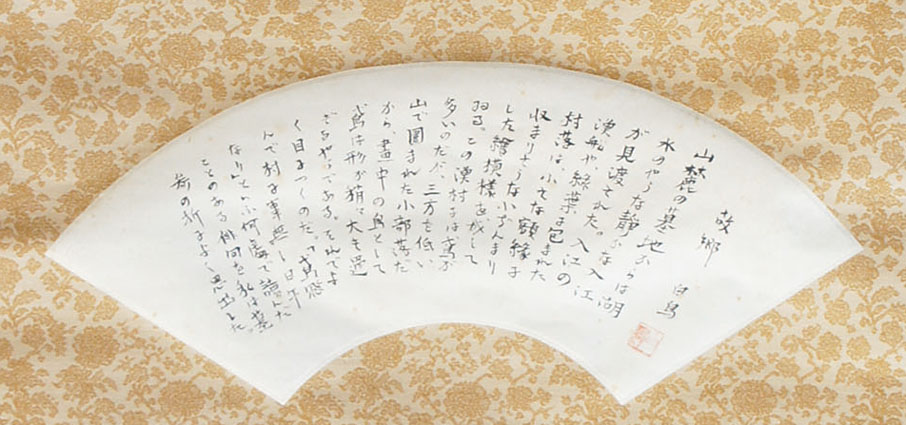 故郷
白鳥
山麓の墓地からは湖
水のやうな静かな入江
が見渡された。入江の
漁船や緑葉に包まれた
村落は、小さな額縁に
収まりさうな小ぢんまり
した繪模様を成して
ゐる。この漁村には鳶が
多いのだが、三方を低い
山で圍まれた小部落だ
から、畫中の鳥として
鳶は形が稍々大き過
ぎるやうである。それでよ
く目につくのだ。「鳶
んで村は事無し日午
なり」といふ何處かで詠んだ
ことのある俳句を私は墓
の折によく思出した